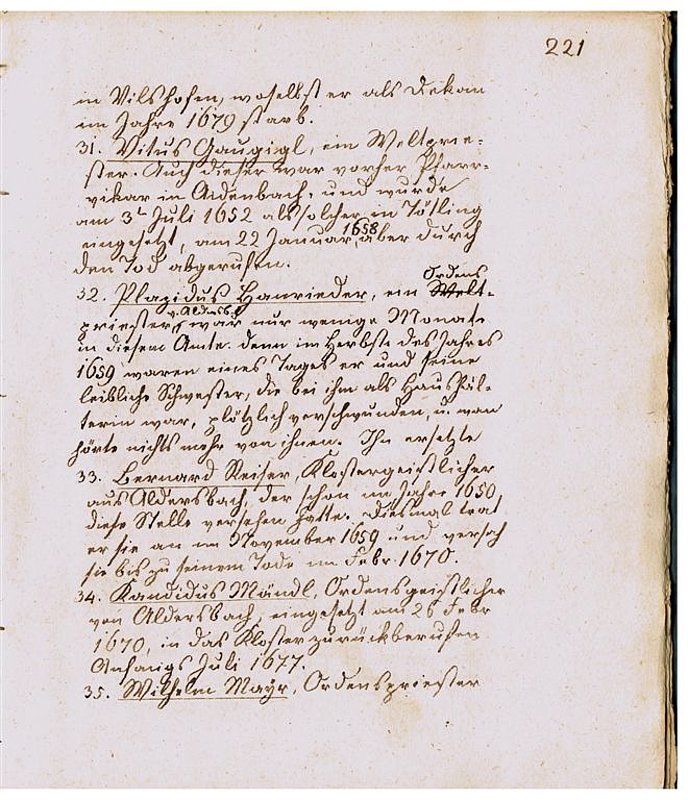 221
in Vilshofen, woselbst er als Dekan
im Jahre 1679 starb.
31. Vitus Gaugigl, ein Weltprie-
ster. Auch dieser war vorher Pfarr-
vikar in Aidenbach, und wurde
am 3t Juli 1652 als solcher in Tötling
eingesetzt, am 22 Januar 1658 aber durch
den Tod abgerufen.
Ordens
32. Plazidus Hanrieder, ein Welt-
priester, v. Aldersb. war nur wenige Monate
in diesem Amte. denn im Herbste des Jahres
1659 waren eines Tages er und seine
leibliche Schwester, die bei ihm als Haushäl-
terin war, plötzlich verschwunden, u. man
hörte nichts mehr von ihnen. Ihn ersetzte
33. Bernard Reiser, Klostergeistlicher
aus Aldersbach, der schon im Jahre 1650
diese Stelle versehen hatte. Diesmal trat
er sie an im November 1659 und versah
sie bis zu seinem Tode im Febr. 1670.
34. Kandidus Mändl, Ordensgeistlicher
von Aldersbach, eingesetzt am 26 Febr
1670, in das Kloster zurückberufen
Anfangs Juli 1677.
35. Wilhelm Mayr, Ordenspriester